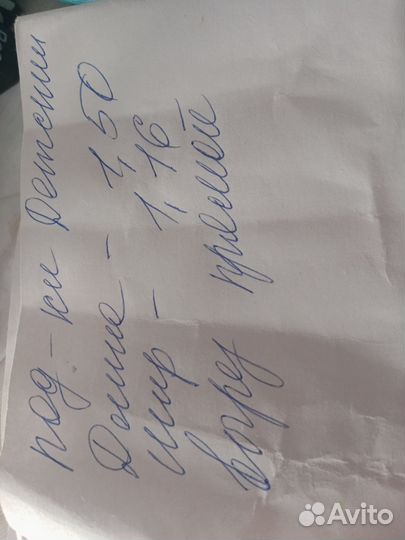 под-ки Детский
Длина - 1,50
шир - 1,16
вверх прямой
Avito